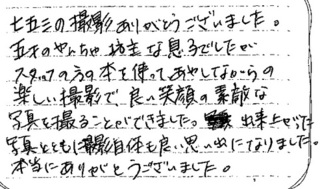 七五三の撮影ありがとうございました。
五才のやんちゃ坊主な息子でしたが
スタッフの方の本を使ってあやしてながらの
楽しい撮影で良い笑顔の素敵な
写真を撮ることができました。出来上がった
写真とともに撮影自体も良い思い出になりました。
本当にありがとうございました。